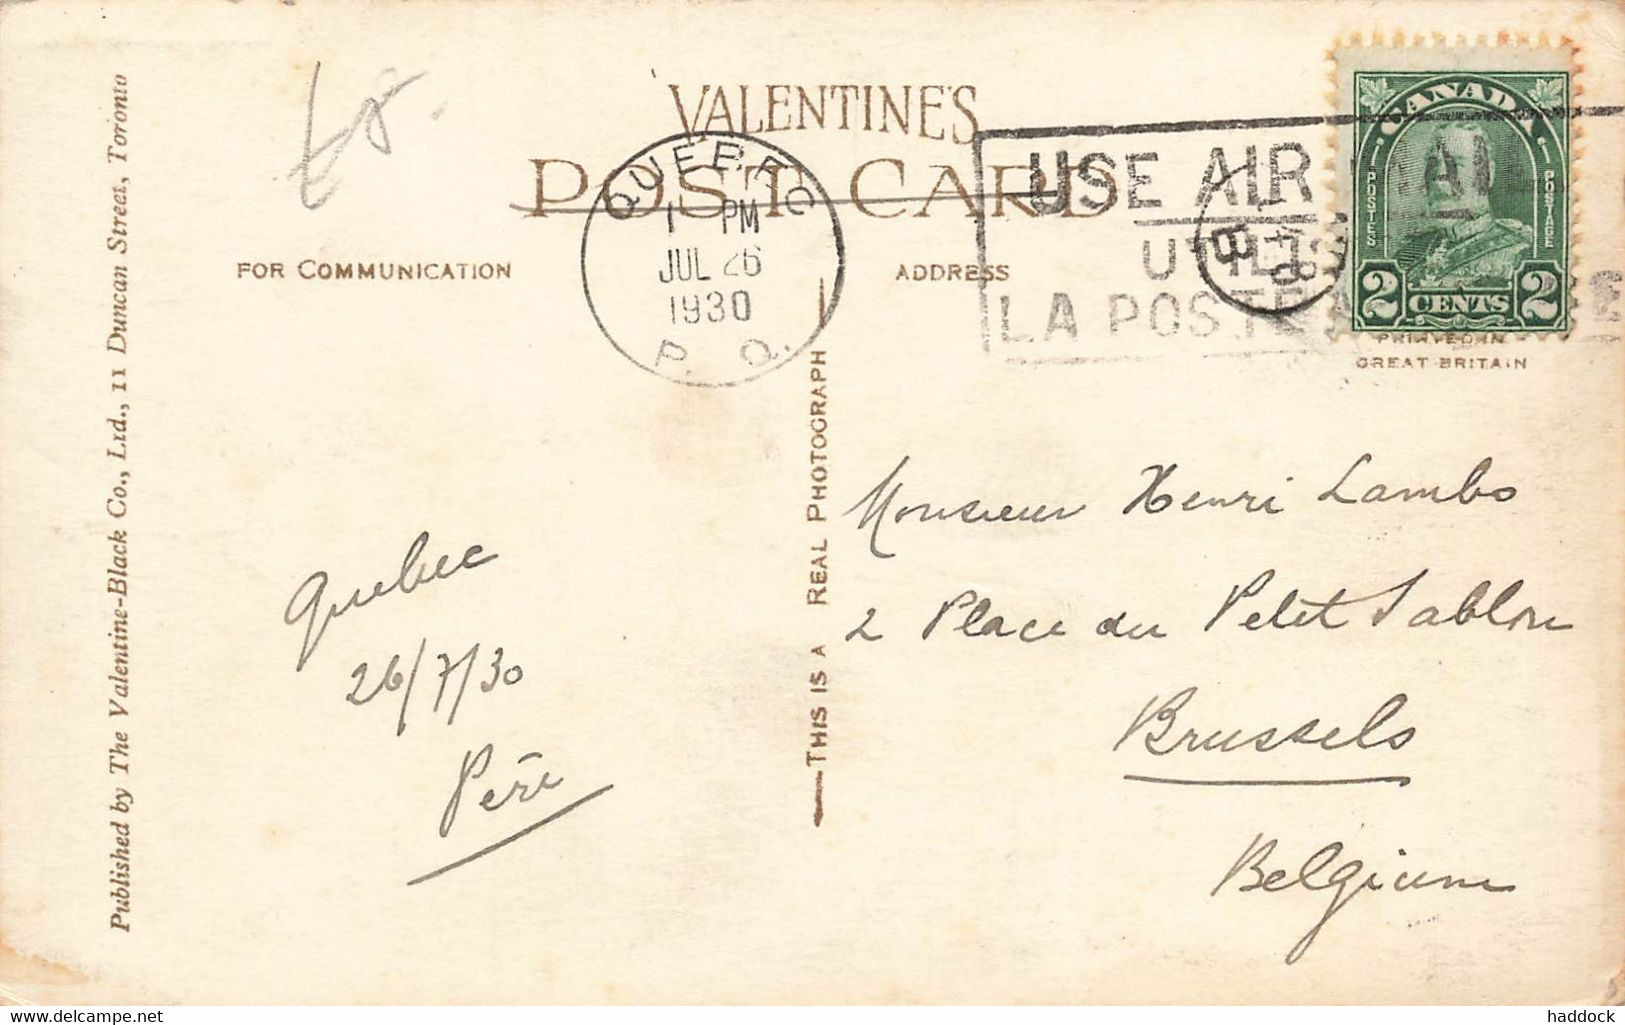 VALENTINE'S
POST CARD
QUEBEC
1 PM
JUL 26
1930
P. Q.
USE AIR MAIL
UTILISEZ
LA POSTE
CANADA
POSTES
POSTAGE
2 CENTS 2
PRINTED IN
GREAT BRITAIN
FOR COMMUNICATION
ADDRESS
Published by The Valentine-Black Co., Ltd., 11 Duncan Street, Toronto
THIS IS A REAL PHOTOGRAPH
Quebec
26/7/30
Père
Monsieur Henri Lambo
2 Place du Petit Sablon
Brussels
Belgium
delcampe.net
haddock